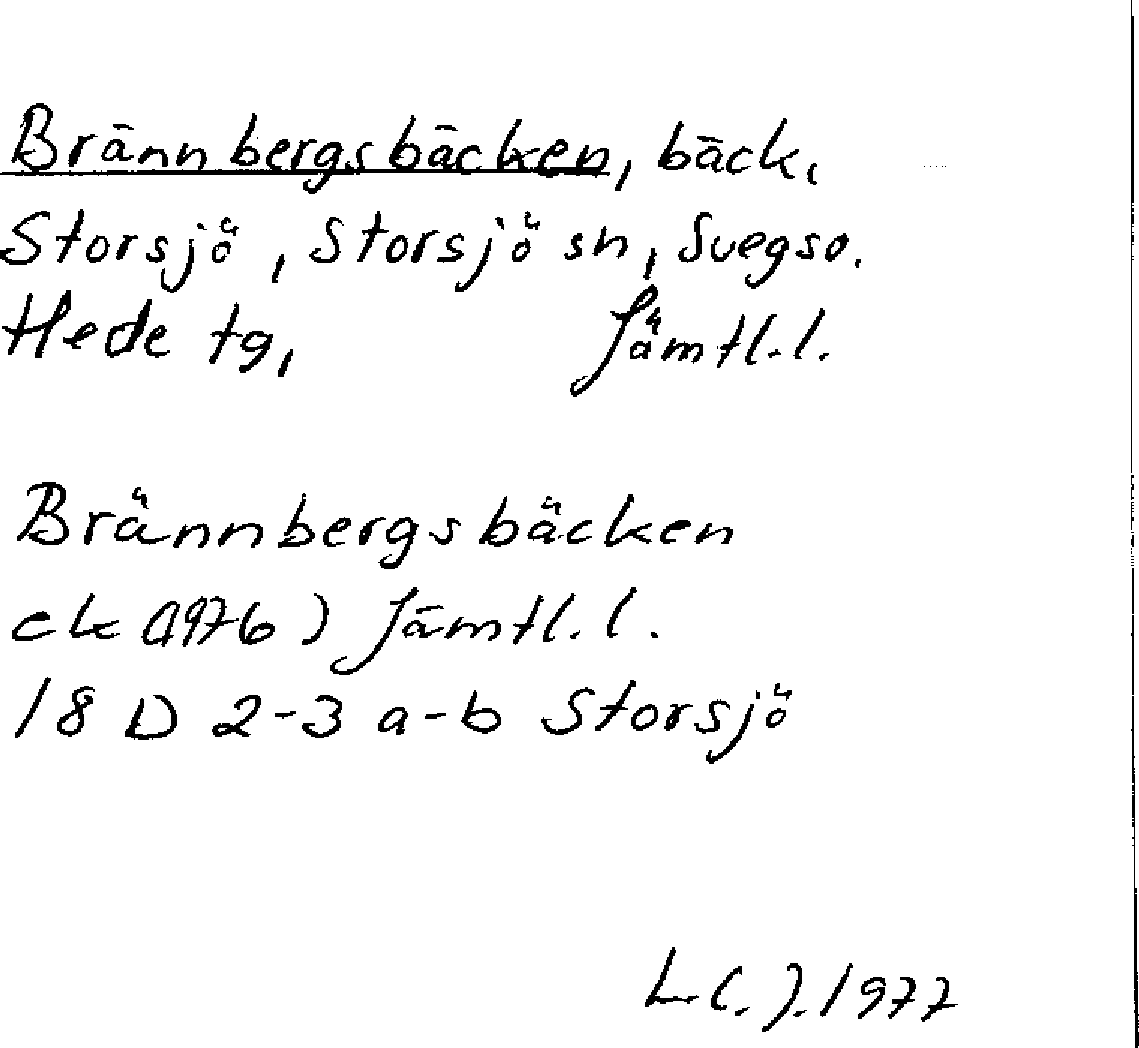 Brännbergsbäcken, bäck,
Storsjö, Storsjö sn, Svegs o.
Hede tg, Jämtl. l.
Brännbergsbäcken
ek (1976) Jämtl. l.
18 D 2-3 a-b Storsjö
1977